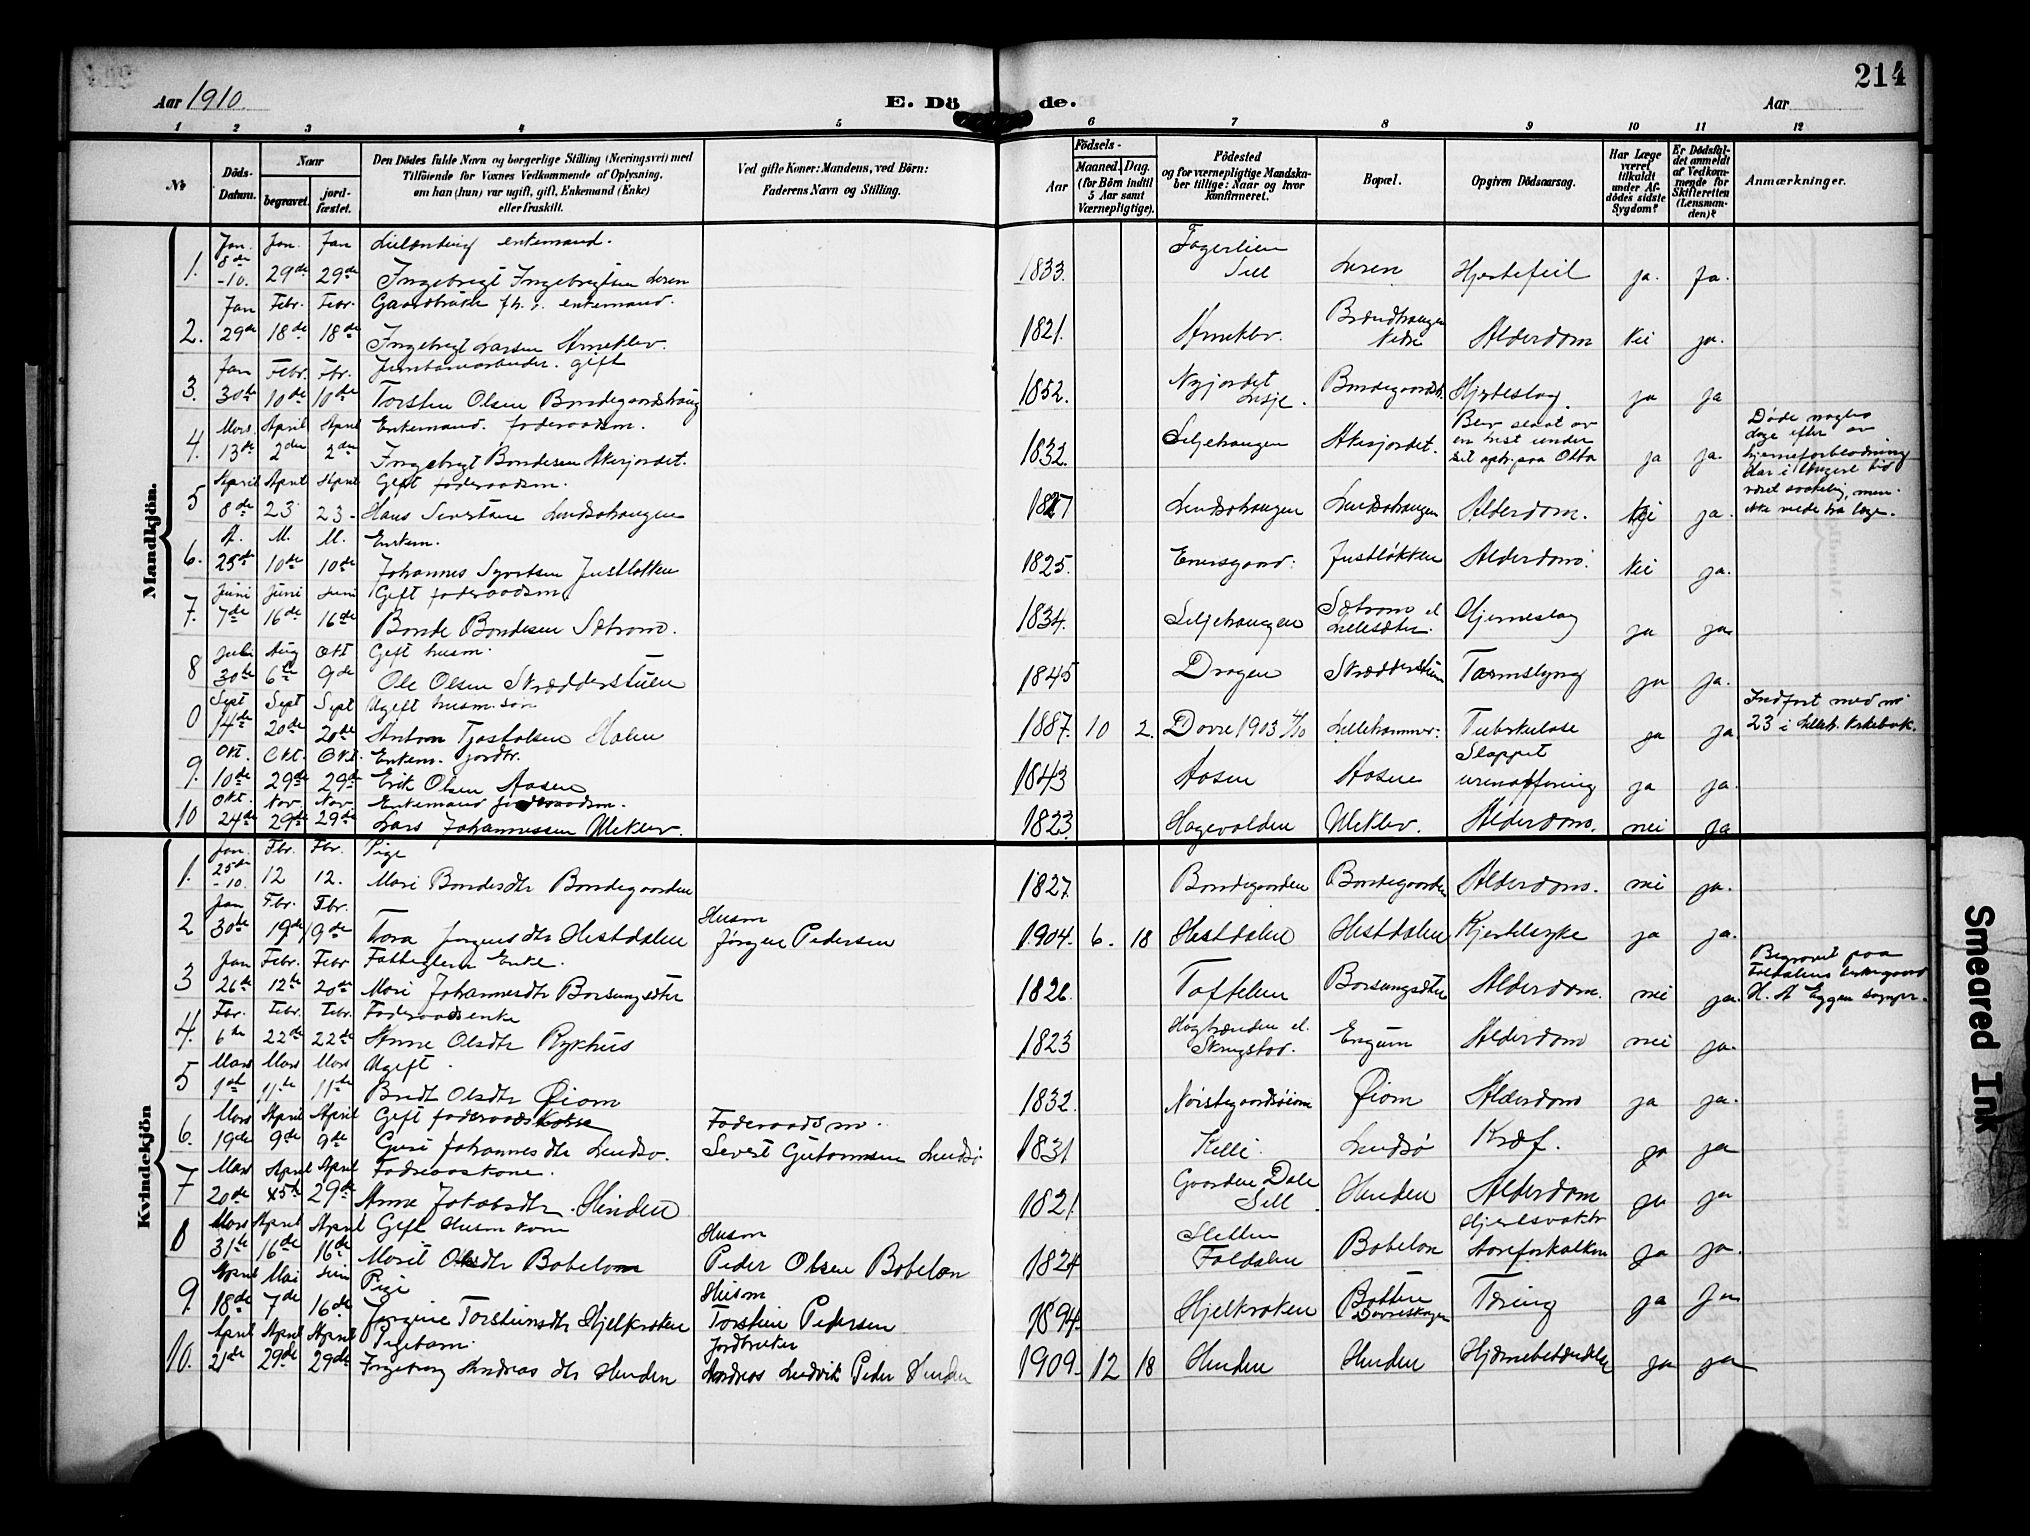 214
Aar 1910.
E. Dö de.
Aar
1 2 3 4 5 6 7 8 9 10 11 12
No
Döds-Datum.
Naar
begravet.
jord-fæstet.
Den Dödes fulde Navn og borgerlige Stilling (Næringsvei) med
Tilföiende for Voxnes Vedkommende af Oplysning,
om han (hun) var ugift, gift, Enkemand (Enke)
eller fraskilt.
Ved gifte Koner: Mandens, ved Börn:
Faderens Navn og Stilling.
Födsels-
Aar
Maaned. Dag.
(for Börn indtil
5 Aar samt
Værnepligtige).
Födested
og for værnepligtige Mandska-
ber tillige: Naar og hvor
konfirmeret.
Bopæl.
Opgiven Dödsaarsag.
Har Læge
været
tilkaldt
under Af-
dödes sidste
Sygdom?
Er Dödsfal-
det anmeldt
af Vedkom-
mende for
Skifteretten
(Lensman-
den)?
Anmærkninger.
Mandkjön.
1. Jan. 8de -10. Jan. 29de Jan 29de enkemand.
Ingebrigt Ingebrigtsen Loren 1833. Fagerlien Sell Loren Hjertefeil ja. Ja.
2. Jan 29de Febr. 18de Febr. 18de Gaardbruker fh. enkemand.
Ingebrigt Larsen 1821. Brændhaugen Nedre Alderdom Nei ja.
3. Jan 30de Febr. 10de Fbr. 10de gift
Torsten Olsen Bondegaardshaug 1852. Nyjordet Lesje. Hjerteslag. ja Ja
4. Mars 13de April 2den April 2den Enkemand. foderaadsm.
Ingebrigt Bondesen Akerjordet. 1832. Seljehaugen Akerjordet. Blev slaat av en hest under paa Otta ja ja. Døde nogle dage efter av hjerneforblødning Har i længere tid været svakelig, men ikke læge.
5 April 8de April 23 April 23- Gift foderaadsm.
Hans Sivertsen Lindsøhaugen 1827 Lindsøhaugen Lindsøhaugen Alderdom. Nei ja.
6. A. 25de M. 10de M. 10de Enkem.
Johannes Syvertsen Justløkken 1825. Enersgaard. Justløkken Alderdom. Nei ja.
7. Juni 7de Juni 16de Juni 16de Gift foderaadsm.
Bonde Bondesen Sætrom. 1834. Seljehaugen Sætrom el Lillesæter. Hjerneslag ja ja.
8 Juli 30te Aug 6te Okt 9de Gift husm.
Ole Olsen Skrædderstuen 1845 Dragen Skrædderstuen Tarmslyng ja ja.
0 Sept 14de Sept 20de Sept 20de Ugift husm. søn
Anton Tjostolsen Holen 1887. 10 2. Dovre 1903 4/10 Lillehammer: Tuberkulose ja ja. Indført med nr 23 i Lilleh. Kirkebok.
9. Okt. 10de Okt. 29de Okt. 29de Enkem. jordbr.
Erik Olsen Aasen 1843 Aasen Aasen Stoppet urinafføring ja ja.
10 Okt. 24de Nov. 29de Nov. 29de Enkemand foderaadsm.
Lars Johannessen Uleklev. 1823. Hagevolden Uleklev. Alderdom. nei ja
Kvindekjön
1. Jan. 25de -10. Fbr. 12 Fbr. 12. Pige
Mari Bondesdtr Bondegaarden 1827. Bondegaarden Bondegaarden Alderdom. nei ja.
2 Jan 30te Fbr. 19de Fbr. 19de
Tora Jørgensdtr Hestdalen Husm Jørgen Pedersen 1904. 6. 18 Hestdalen Hestdalen Kjertelsyke ja ja.
3 Jan 26de Febr. 12te Febr 20de Fattiglem Enke.
Mari Johannesdtr Borsungsæter 1826. Toftelien Borsungsæter Alderdom. nei ja. Begravet paa Foldalens kirkegaard H. A Eggen sognpr.
4. Fbr. 6te Febr. 22de Febr. 22de Foderaadsenke
Anne Olsdtr Rykhus 1823 el. Skrugstad. Engum Alderdom nei ja.
5 Mars 1ste Mars 11te Mars 11te Ugift.
Brit Olsdtr Øiom 1832. Øiom Alderdom ja ja.
6. Mars 19de April 9de April 9de Gift foderaadskone
Guri Johannesdtr Lindsø. Foderaadsm. Sivert Guttormsen Lindsø 1831 Killi Lindsø Kræf. ja ja
7 Mars 20de April April 29de Foderaadskone.
Anne Jakobsdtr. Hinden 1821 Gaarden Dale Sell. Hinden Alderdom ja ja
8 Mars 31te April 16de April 16de Gift Husm kone
Marit Olsdtr Babelon Husm Peder Olsen Babelon 1824 Foldalen Babelon Aareforkalkn ja ja.
9. April 18de Mai 7de Juni 16de Pige
Jørgine Torsteinsdtr Hjelkroken Husm Torstein Pedersen 1894. Hjelkroken Botten Dovreskogen Tæring ja Ja
10. April 21de April 29de April 29de Pigebarn.
Ingeborg Andreasdtr Hinden Jordbruker Andreas Ludvik Peder Hinden 1909. 12 18 Hinden Hinden Hjernebetændelse ja ja
Smeared Ink